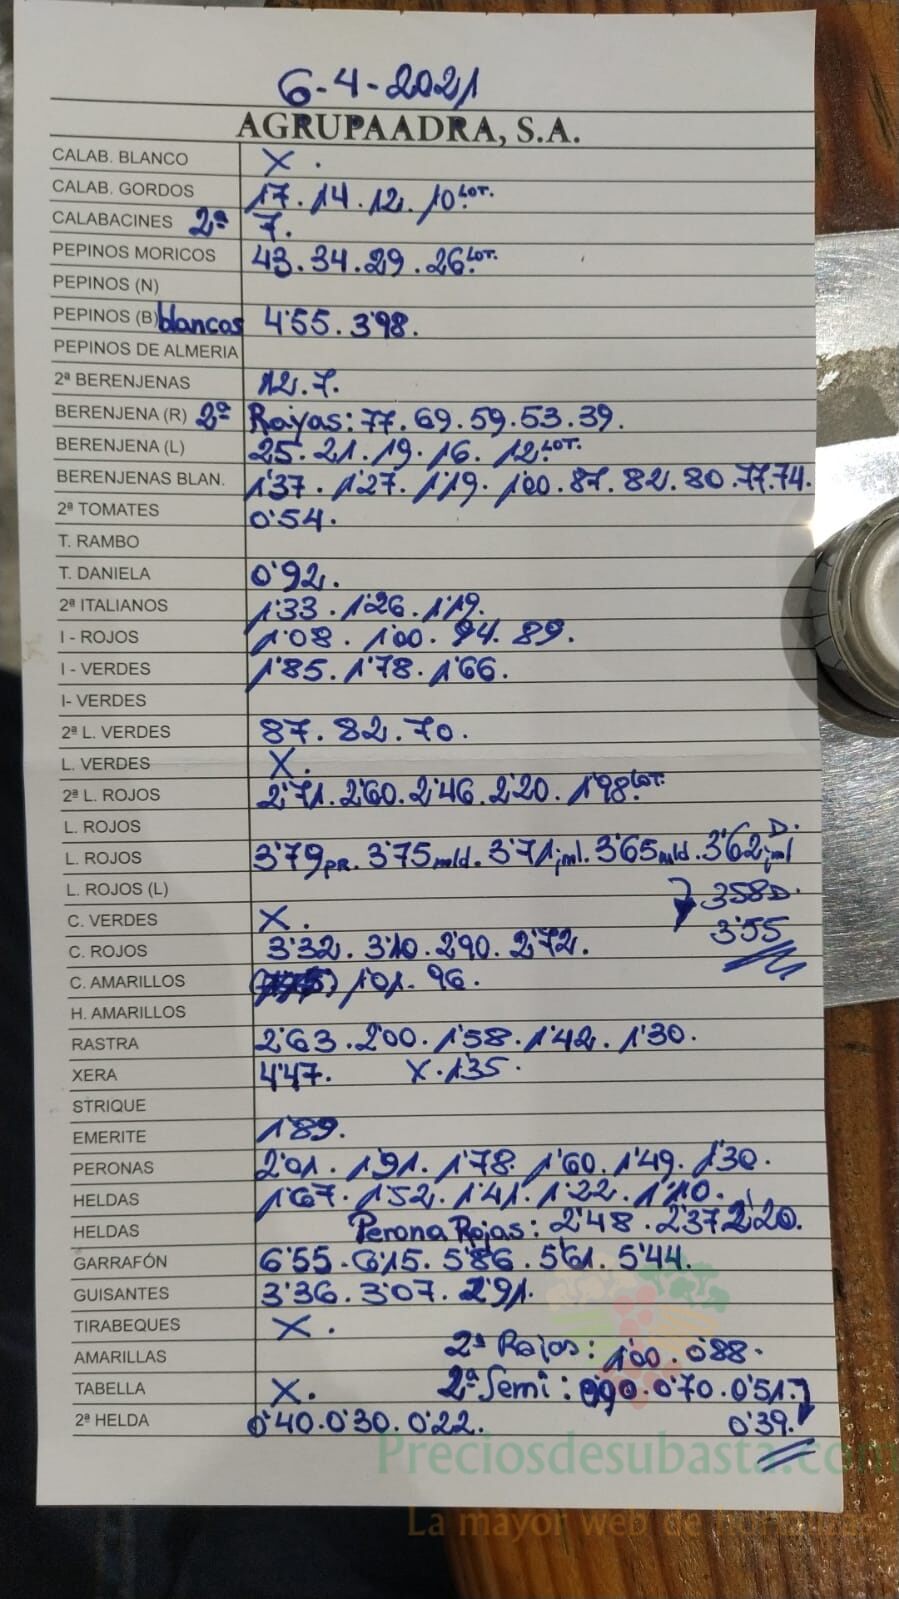 6-4-2021
AGRUPAADRA, S.A.
CALAB. BLANCO X.
CALAB. GORDOS 17. 14. 12. 10 LOT.
CALABACINES 2ª 7.
PEPINOS MORICOS 43. 34. 29. 26 LOT.
PEPINOS (N)
PEPINOS (B) blancos 4'55. 3'98.
PEPINOS DE ALMERIA
2ª BERENJENAS 12. 7.
BERENJENA (R) 2ª Rayas: 77. 69. 59. 53. 39.
BERENJENA (L) 25. 21. 19. 16. 12 LOT.
BERENJENAS BLAN. 1'37. 1'27. 1'19. 1'00. 87. 82. 80. 77. 74.
2ª TOMATES 0'54.
T. RAMBO
T. DANIELA 0'92.
2ª ITALIANOS 1'33. 1'26. 1'19.
I - ROJOS 1'08. 1'00. 94. 89.
I - VERDES 1'85. 1'78. 1'66.
I- VERDES
2ª L. VERDES 87. 82. 70.
L. VERDES X.
2ª L. ROJOS 2'71. 2'60. 2'46. 2'20. 1'98 LOT.
L. ROJOS
L. ROJOS 3'79 pr. 3'75 mld. 3'71 jml. 3'65 mld. 3'62 jml D.
L. ROJOS (L) 3'58 D.
C. VERDES X. 3'55
C. ROJOS 3'32. 3'10. 2'90. 2'72.
C. AMARILLOS 1'01. 96.
H. AMARILLOS
RASTRA 2'63. 2'00. 1'58. 1'42. 1'30.
XERA 4'47. X. 1'35.
STRIQUE
EMERITE 1'89.
PERONAS 2'01. 1'91. 1'78. 1'60. 1'49. 1'30.
HELDAS 1'67. 1'52. 1'41. 1'22. 1'10.
HELDAS Perona Rojas: 2'48. 2'37. 2'20.
GARRAFÓN 6'55. 6'15. 5'86. 5'61. 5'44.
GUISANTES 3'36. 3'07. 2'91.
TIRABEQUES X.
AMARILLAS 2ª Rojos: 1'00. 0'88.
TABELLA X. 2ª Semi: 0'90. 0'70. 0'51.
2ª HELDA 0'40. 0'30. 0'22. 0'39.
Preciosdesubasta.com
La mayor web de hortalizas